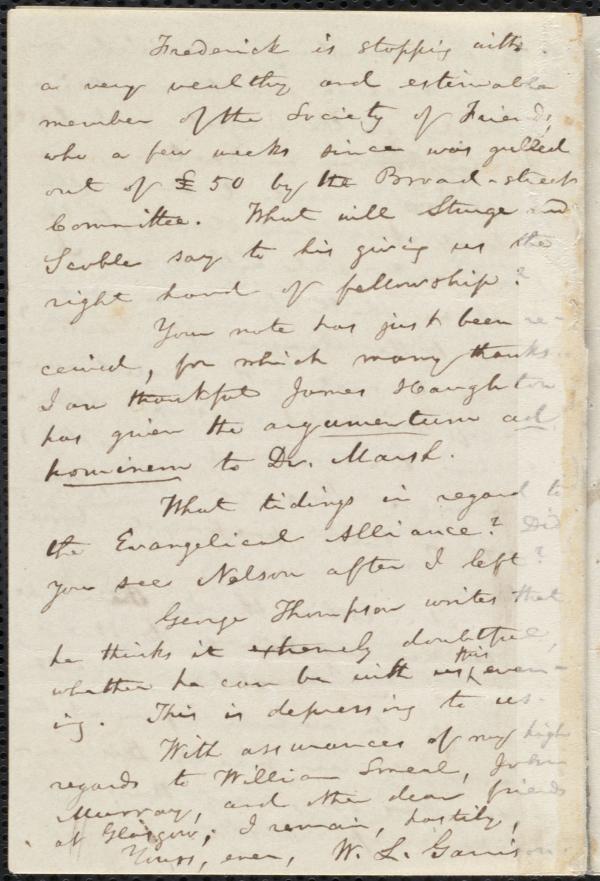 Frederick is stopping with
a very wealthy and estimable
member of the Society of Friends,
who a few weeks since was gulled
out of £50 by the Broad-street
Committee. What will Sturge and
Scoble say to his giving us the
right hand of fellowship?
Your note has just been re-
ceived, for which many thanks.
I am thankful James Haughton
has given the argumentum ad
hominem to Dr. Marsh.
What tidings in regard to
the Evangelical Alliance? Did
you see Nelson after I left?
George Thompson writes that
he thinks it extremely doubtful,
whether he can be with us this even-
ing. This is depressing to us.
With assurances of my high
regards to William Smeal, John
Murray, and other dear friends
at Glasgow, I remain, hastily,
Yours, ever, W. L. Garrison.